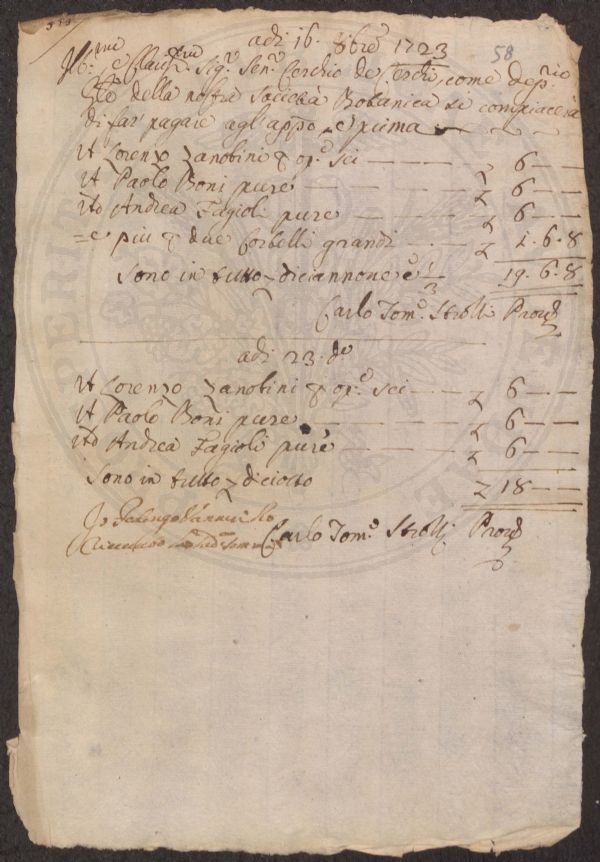 adi 16. 8bre 1723
58
Ill:mo e Clariss:mo Sig:r Sen:r Cerchio de Cerchi, come dep:rio
Gle della nostra Società Botanica si compiacerà
di far' pagare agl'appo e prima
A Lorenzo Zanobini p op:e sei — 6 —
A Paolo Boni pure — 6 —
A Andrea Fagioli pure — 6 —
e più p due corbelli grandi — 1. 6. 8
Sono in tutto diciannove e 1/3 19. 6. 8
Carlo Tom:o Strolli Prov:e
adi 23. do
A Lorenzo Zanobini p op:e sei — 6 —
A Paolo Boni pure — 6 —
A Andrea Fagioli pure — 6 —
Sono in tutto diciotto 18 —
Io
Carlo Tom:o Strolli Prov:e